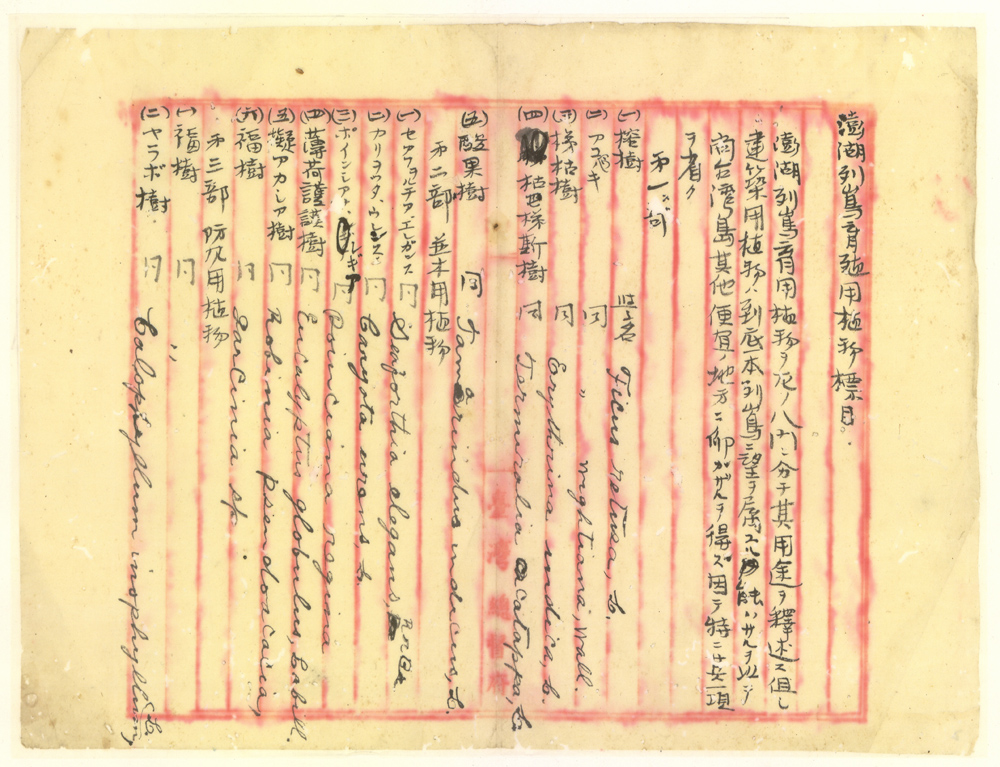 澎湖列島育殖用植物標目。
澎湖列島育用植物ヲ左ノ八門ニ分チ其用途ヲ釋述ス但シ
建築用植物ノ到底本列島ニ望ヲ属スル能ハサルヲ以テ
尚台湾島其他便宜ノ地方ニ仰ガザルヲ得ズ因テ特ニ其項
ヲ省ク
第一部
(一) 榕樹 學名 Ficus retusa, L.
(二) アコギ 同 〃 wightiana, Wall.
(三) 梯枯樹 同 Erythrina indica, L.
(四) 枯芭樣斯樹 同 Terminalia catappa, L.
(五) 酸果樹 同 Tamarindus indicus, L.
第二部 並木用植物
(一) セアフォルチアエレガンス 同 Seaforthia elegans, R.Br.
(二) カリヨフタ、ウレンス 同 Caryota urens, L.
(三) ポインシアナ、レギア 同 Poinciana regina
(四) 薄荷護謨樹 同 Eucalyptus globulus, Labill.
(五) 擬アカシア樹 同 Robinia pseudoacacia,
(六) 福樹 同 Garcinia sp.
第三部 防風用植物
(一) 福樹 同 〃
(二) ヤラボ樹 同 Calophyllum inophyllum, L.
臺灣總督府